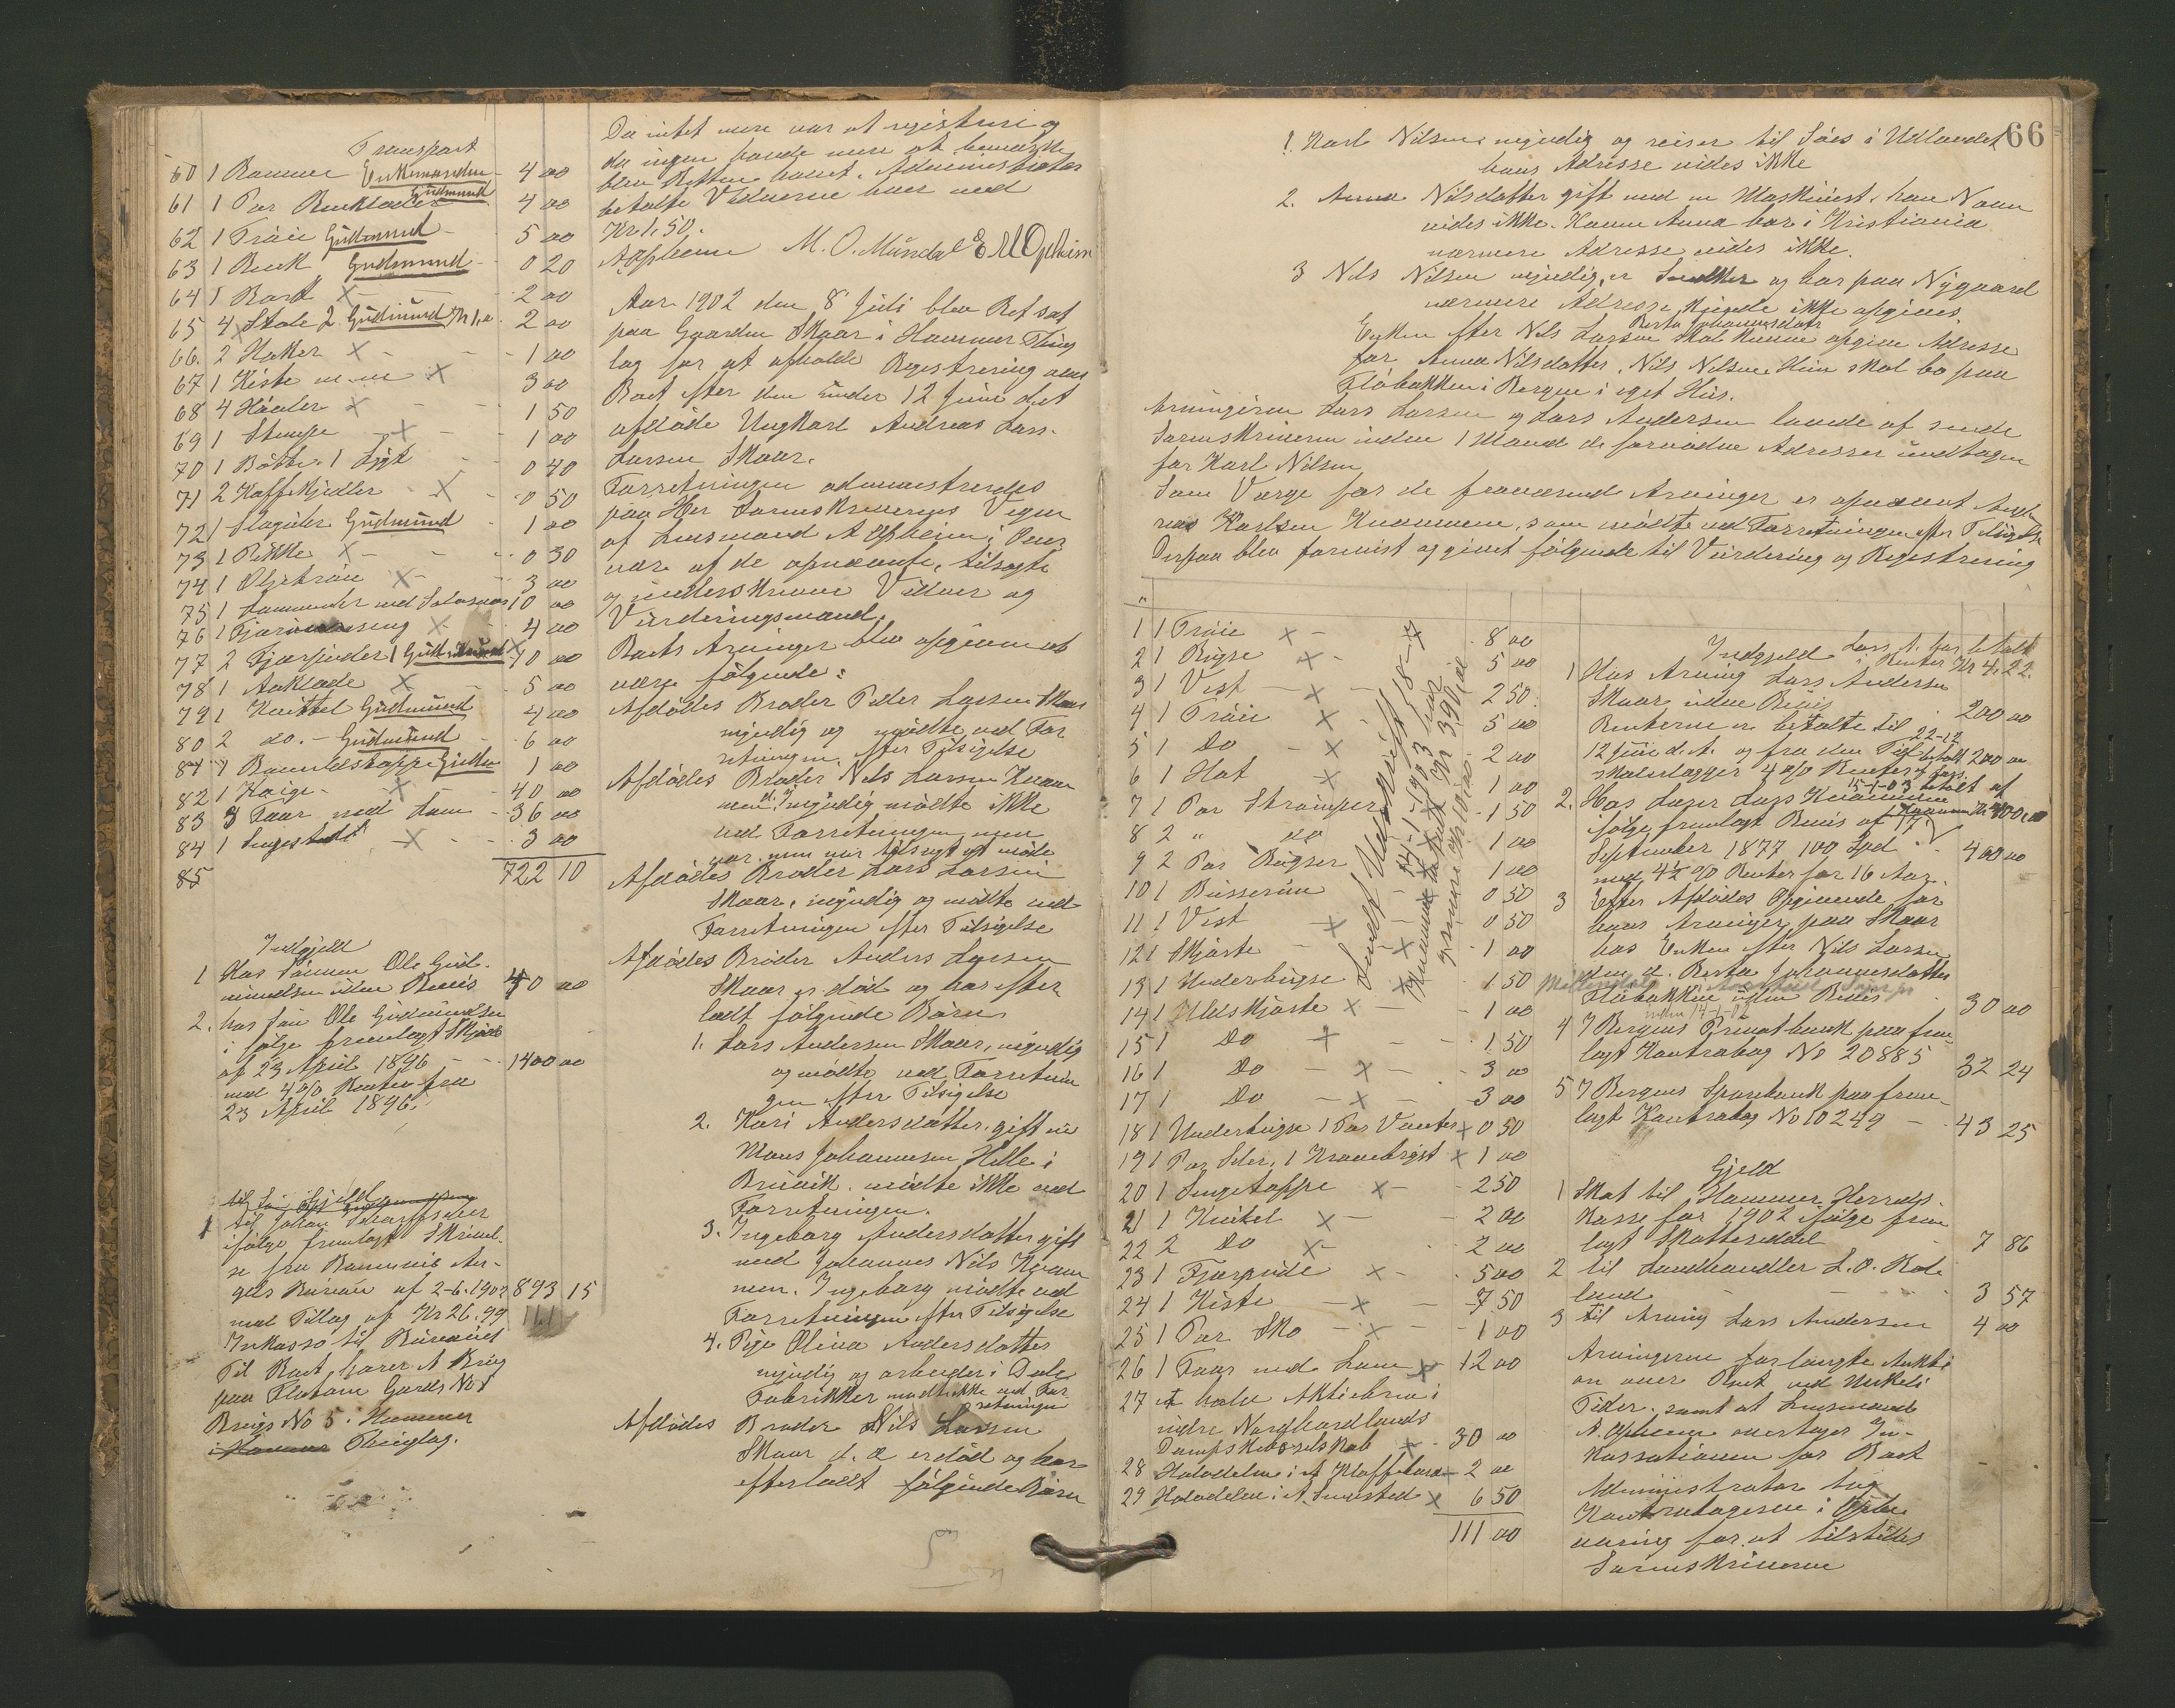 Transport
60 1 Rammer Enkemanden - 4 00
61 1 Par Buklader Gudmund 4 00
62 1 Tröie Gudmund - 5 00
63 1 Buk Gudmund - 0 20
64 1 Bord X - 2 00
65 4 Stole 2 Gudmund 2 00
66. 2 Hakker X - - 1 00
67 1 Kiste m.m X 3 00
68 4 Håaler X - - 1 50
69 1 Stampe X - - 1 00
70 1 Bötte. 1 Lygt - 0 40
71 2 Kaffekjedler X - 0 50
72 1 Slaguhr Gudmund 1 00
73 1 Pikke X - - 0 30
74 1 Oljetröie X - 3 00
75 1 Lommeuhr med Sølvsnor 10 00
76 1 seng X - 4 00
77 2 Fjærpuder 1 Gudmund X 10 00
78 1 Aaklæde X - 5 00
79 1 Knittel Gudmund 4 00
80 2 do. - Gudmund - 6 00
81 1 Gudm 1 00
82 1 Kvige - X - 40 00
83 3 Faar med Lam - 36 00
84 1 Smiested X - 3 00
85 722 10
Indgjeld
1 Hos Sönnen Ole Gud-
mundsen uden Bevis 40 00
2. hos Sön Ole Gudmundsen
i fölge fremlagt Skjöde
af 23 April 1896 - - 1400 00
med 4 % Renter fra
23 April 1896.
Gjeld
1 til Johan
ifölge fremlagt Skrivel-
se fra
Bureau af 2-6-1902 893 15
med Tillag af Kr 26.99
Inkasso til Bureauet
Til Boet hører A Brug
paa Flatøen Gards No 1
Brugs No 5 i Hammer
i Hammer Thinglag.
Da intet mere var at registrere og
da ingen havde mere at bemærke
blev Retten hævet. Administrator
betalte Vidnerne hver med
Kr 1.50.
A Opheim M. O. Mundal E M Opheim
Aar 1902 den 8 Juli blev Ret sat
paa Gaarden Skaar i Hammer Thing
lag for at afholde Registrering over
Boet efter den under 12 Juni d. A
afdöde Ungkarl Andreas Lars-
Larsen Skaar.
Forretningen administreredes
paa Her Sorenskriverens Vegne
af Lensmand A Opheim i Over
være af de opnævnte, tilsagte
og underskrevne Vidner og
Vurderingsmænd.
Boets Arvinger blev opgivne at
være fölgende:
Afdödes Broder Peder Larsen Skaar
myndig og mödte ved For
retningen efter Tilsigelse
Afdödes Broder Nils Larsen Kvam
men myndig mödte ikke
ved Forretningen men
var tilsagt at möde
Afdödes Broder Lars Larsen
Skaar, myndig og mödte ved
Forretningen efter Tilsigelse
Afdödes Broder Anders Larsen
Skaar er död og har efter
ladt fölgende Börn
1. Lars Andersen Skaar, myndig
og mödte ved Forretnin
gen efter Tilsigelse
2. Kari Andersdatter, gift m
Mons Johannesen Helle i
Bruvik. mödte ikke ved
Forretningen.
3. Ingeborg Andersdatter gift
med Johannes Nils Kvam
men. Ingeborg mödte ved
Forretningen efter Tilsigelse
4. Pige Olina Andersdatter
myndig og arbeider i Dale
Fabrikker mödte ikke ved For
retningen
Afdödes Broder Nils Larsen
Skaar d. æ er död og har
efterladt fölgende Börn
66
1. Karl Nilsen myndig og reiser til Söes i Udlandet
hans Adresse vides ikke
2. Anna Nilsdatter gift med en Maskinist. hans Navn
vides ikke. Konen Anna bor i Kristiania
nærmere Adresse vides ikke.
3 Nils Nilsen myndig, er Snekker og bor paa Nygaard
nærmere Adresse kjende ikke opgives.
Enken efter Nils Larsen Berta Johannesdatr skal kunne opgive Adresse
for Anna Nilsdatter, Nils Nilsen. Hun skal bo paa
Flöbakken i Bergen i eget Hus.
Arvingerne Lars Larsen og Lars Andersen lovede at sende
Sorenskriveren inden 1 Maaned de fornödne Adresser undtagen
for Karl Nilsen
Som Værge for de fraværende Arvinger er opnævnt And
reas Karlsen Kvammen, som mödte ved Forretningen efter Tilsigelse
Derpaa blev foranst og givet fölgende til Vurdering og Registrering
1 1 Tröie X - 8 00
2 1 Bugse X - 5 00
3 1 Vest - X - 2 50
4 1 Tröie X 5 00
5 1 Do - X 2 00
6 1 Hat X 1 00
7 1 Par Strömper 1 50
8 2 " do 1 00
9 2 Par Bugser 1 00
10 1 Busserün 0 50
11 1 Vest X 0 50
12 1 Skjorte - X - 1 00
13 1 Underbugse X 1 50
14 1 Uldskjorte X - - 1 00
15 1 Do X - - 1 50
16 1 Do - X - - 3 00
17 1 Do - X - 3 00
18 1 Underbugse 1 Par Vanter X 0 50
19 1 Par Seler. 1 Kravebryst X 1 00
20 1 Sengetæppe X - 2 50
21 1 Knitel X - - 2 00
22 2 Do X - 2 00
23 1 Fjærpude X - 5 00
24 1 Kiste - X - 7 50
25 1 Par Sko - X - 1 00
26 1 Faar med Lam X 12 00
27 et halv Aktiebrev i
indre Nordhordlands
Dampskibsselskab X 30 00
28 Halvdelen i A 2 00
29 Halvdelen i A. Smiested X 6 50
111 00
Sendt Udskrift 18-7
Indgjeld Lars A. har betalt
i Renter Kr 4.22.
1 Hos Arving Lars Andersen
Skaar uden Bevis 200 00
Renterne er betalte til 22-12
12 Juni d. A. og fra den Tid betalt 200 00
skatlægges 4 % Renter af Lars.
2. Hos Lars Kvammen 15-1-03 betalt af
fölge fremlagt Bevis af 17 Kvammen Kr 400,00
September 1877 100 Spd 400 00
med 4½ % Renter for 16 Aar.
3 Efter Afdödes Opgivende for
hans Arvinger paa Skaar
hos Enken efter Nils Larsen
d. æ. Berta Johannesdatter
Flöbakken uden Bevis 30 00
4 I Bergens Privatbank paa frem-
lagt Kontrabog No 20885 32 24
5 I Bergens Sparebank paa frem-
lagt Kontrabog No 10249 - 43 25
Gjeld
1 Skat til Hammer Herreds-
kasse for 1902 ifölge frem
lagt Skatteseddel 7 86
2 til Landhandler L. O. Rod-
land - - 3 57
3 til Arving Lars Andersen 4 00
Arvingerne forlangte Aukti
on over Boet ved
Tider. samt at Lensmand
A. Opheim overtager In-
kassationen for Boet
Administrator tog
Kontrabøgerne i Opbe
varing for at tilstilles
Sorenskriveren